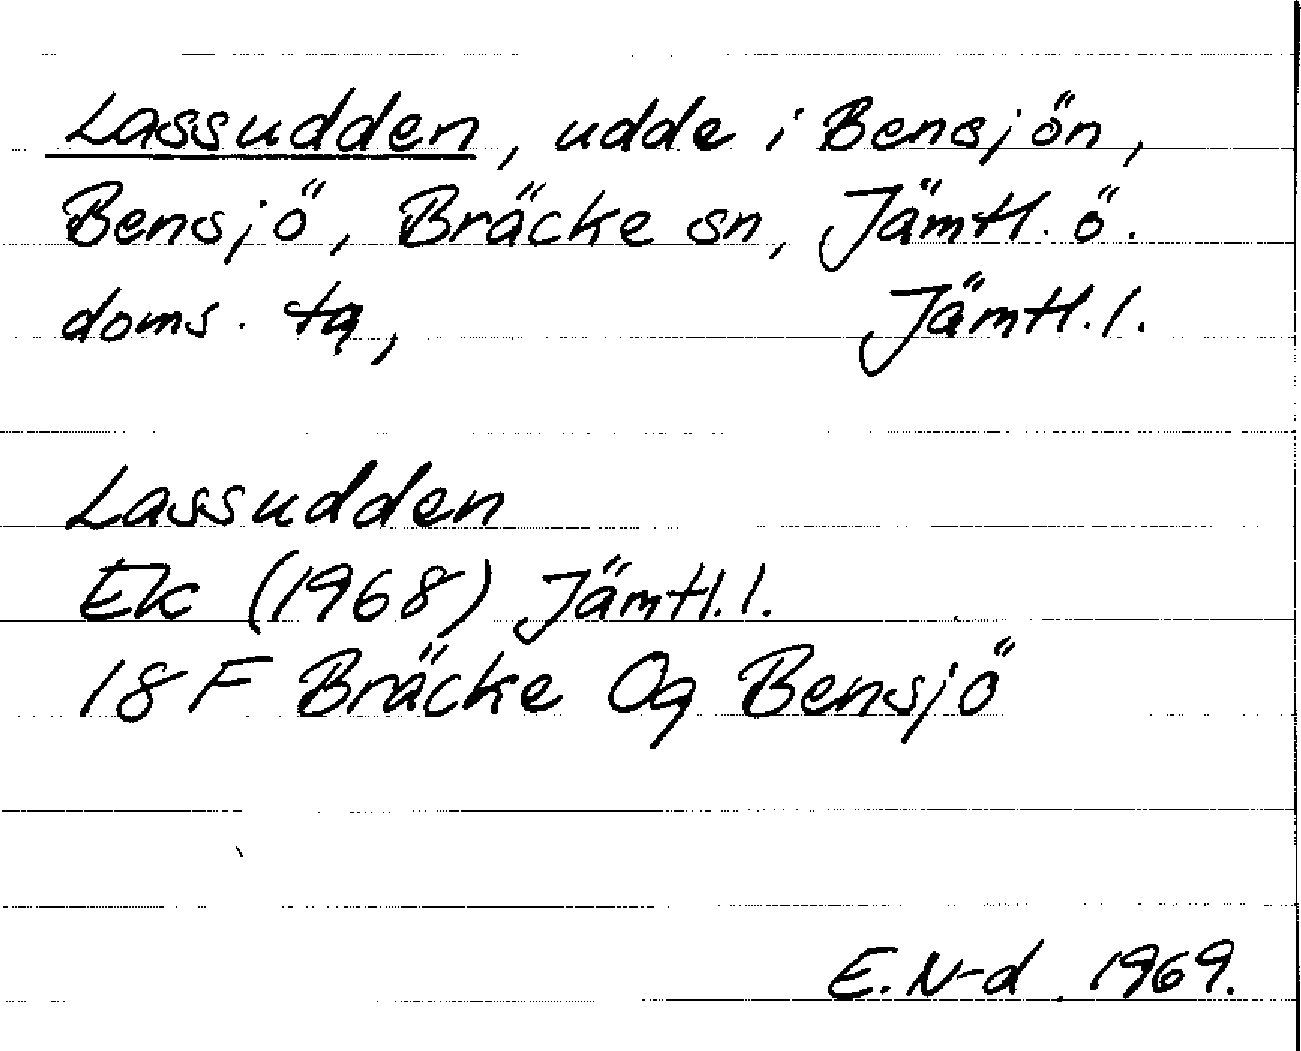 Lassudden, udde i Bensjön,
Bensjö, Bräcke sn, Jämtl. ö.
doms. tg, Jämtl. l.
Lassudden
Ek (1968) Jämtl. l.
18 F Bräcke Og Bensjö
E. N-d. 1969.